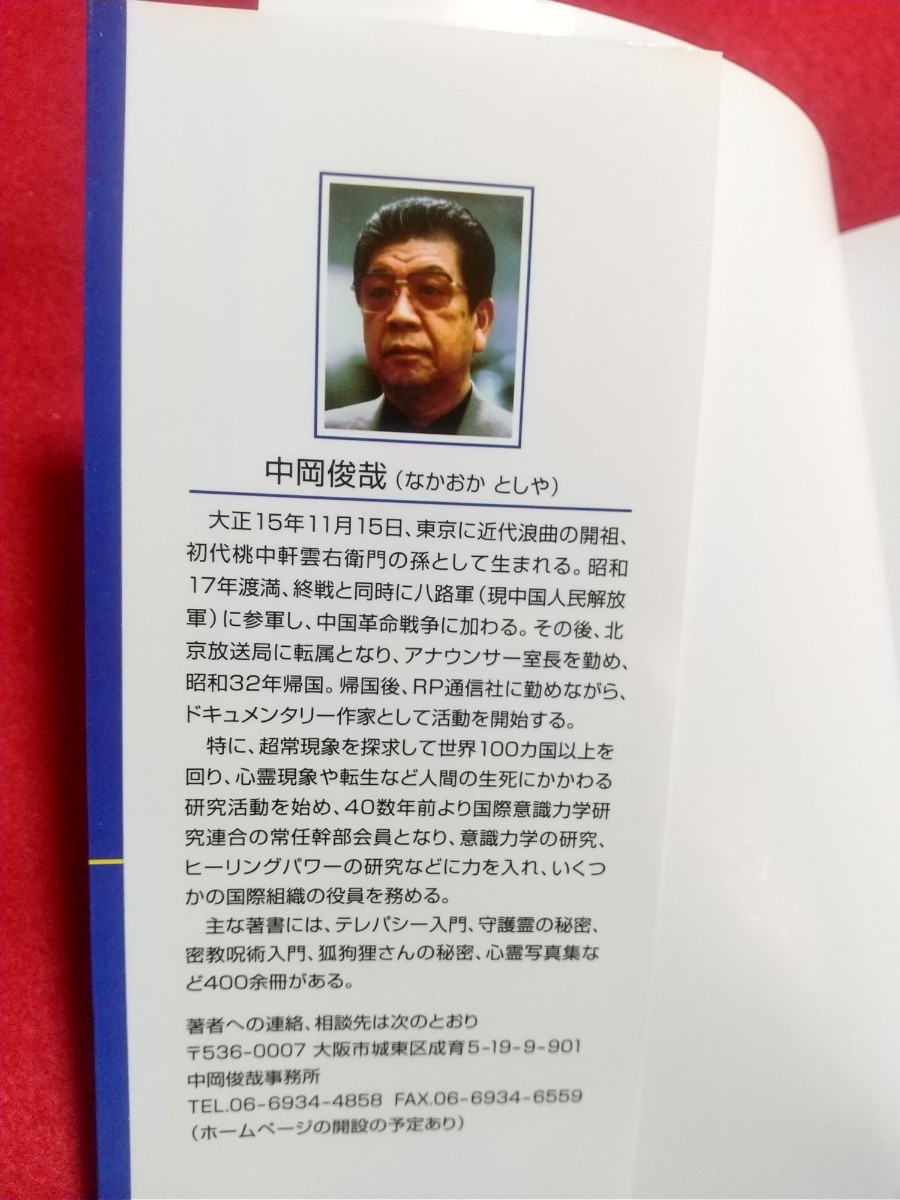 中岡俊哉(なかおか としや)
大正15年11月15日、東京に近代浪曲の開祖、
初代桃中軒雲右衛門の孫として生まれる。昭和
17年渡満、終戦と同時に八路軍(現中国人民解放
軍)に参軍し、中国革命戦争に加わる。その後、北
京放送局に転属となり、アナウンサー室長を勤め、
昭和32年帰国。帰国後、RP通信社に勤めながら、
ドキュメンタリー作家として活動を開始する。
特に、超常現象を探求して世界100カ国以上を
回り、心霊現象や転生など人間の生死にかかわる
研究活動を始め、40数年前より国際意識力学研
究連合の常任幹部会員となり、意識力学の研究、
ヒーリングパワーの研究などに力を入れ、いくつ
かの国際組織の役員を務める。
主な著書には、テレパシー入門、守護霊の秘密、
密教呪術入門、狐狗狸さんの秘密、心霊写真集な
ど400余冊がある。
著者への連絡、相談先は次のとおり
〒536-0007 大阪市城東区成育5-19-9-901
中岡俊哉事務所
TEL.06-6934-4858 FAX.06-6934-6559
(ホームページの開設の予定あり)